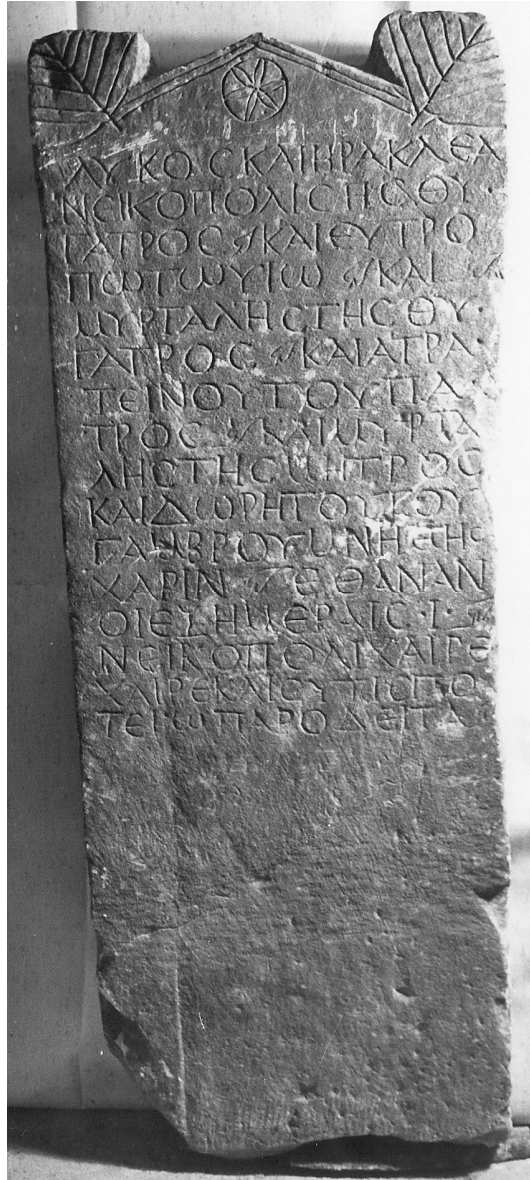 ΛΥΚΟϹ ΚΑΙ ΗΡΑΚΛΕΑ
ΝΕΙΚΟΠΟΛΙϹ ΤΗϹ ΘΥ
ΓΑΤΡΟϹ ΚΑΙ ΕΥΤΡΟ
ΠΩ ΤΩ ΥΙΩ ΚΑΙ
ΜΥΡΤΑΛΗϹ ΤΗϹ ΘΥ
ΓΑΤΡΟϹ ΚΑΙ ΑΤΡΑ
ΤΕΙΝΟΥ ΤΟΥ ΠΑ
ΤΡΟϹ ΚΑΙ ΜΥΡΤΑ
ΛΗϹ ΤΗϹ ΜΗΤΡΟϹ
ΚΑΙ ΔΩΡΗΤΟΥ
ΓΑΜΒΡΟΥ
ΧΑΡΙΝ ΕΘΑΝΑΝ
ΟΙ ΕΞ ΗΜΕΡΑΙϹ Ι
ΝΕΙΚΟΠΟΛΙ ΧΑΙΡΕ
ΧΑΙΡΕ ΚΑΙ ϹΥ ΤΙϹ ΠΟ
ΤΕ Ι Ω ΠΑΡΟΔΕΙΤΑ